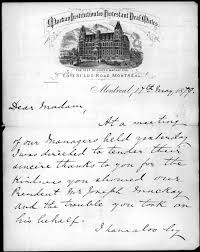 Mackay Institution for Protestant Deaf Mutes
Cote St Luc Road, Montreal.
Montreal, 17th May 1879.
Dear Madam,
At a meeting
of our Managers held yesterday
I was directed to tender their
sincere thanks to you for the
kindness you showed our
President Mr Joseph Mackay
and the trouble you took on
his behalf.
I have also